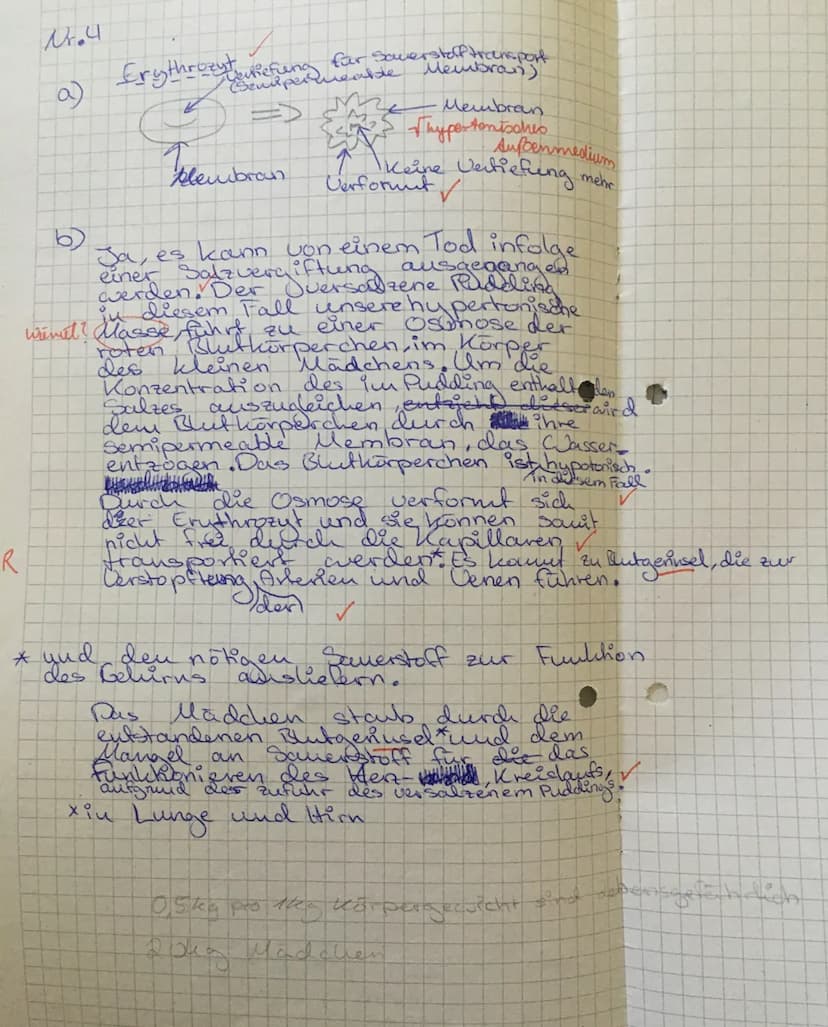 Nr. 4
a) Erythrozyt
Vertiefung für Sauerstofftransport
(Semipermeable Membran)
Membran
hypertonisches
Außenmedium
Membran
Verformt
Keine Vertiefung mehr
b)
Ja, es kann von einem Tod infolge
einer Salzvergiftung ausgegangen
werden. Der Übersalzene Pudding
in diesem Fall unsere hypertonische
wieviel? Masse, führt zu einer Osmose der
roten Blutkörperchen, im Körper
des kleinen Mädchens. Um die
Konzentration des im Pudding enthaltenden
Salzes auszugleichen, entzieht dieser wird
dem Blutkörperchen, durch ihre
semipermeable Membran, das Wasser
entzogen. Das Blutkörperchen ist hypotonisch.
in diesem Fall
Durch die Osmose verformt sich
der Erythrozyt und sie können somit
nicht frei durch die Kapillaren
R transportiert werden.* Es kommt zu Blutgerinsel, die zur
Verstopfung Arterien und Venen führen.
der
* und den nötigen Sauerstoff zur Funktion
des Gehirns ausliefern.
Das Mädchen starb durch die
entstandenen Blutgerinsel* und dem
Mangel an Sauerstoff für die das
Funktionieren des Herz-, Kreislaufs,
aufgrund der zufuhr des versalzenem Puddings.
*in Lunge und Hirn
0,5kg pro 1kg Körpergewicht sind lebensgefährlich
20kg Mädchen